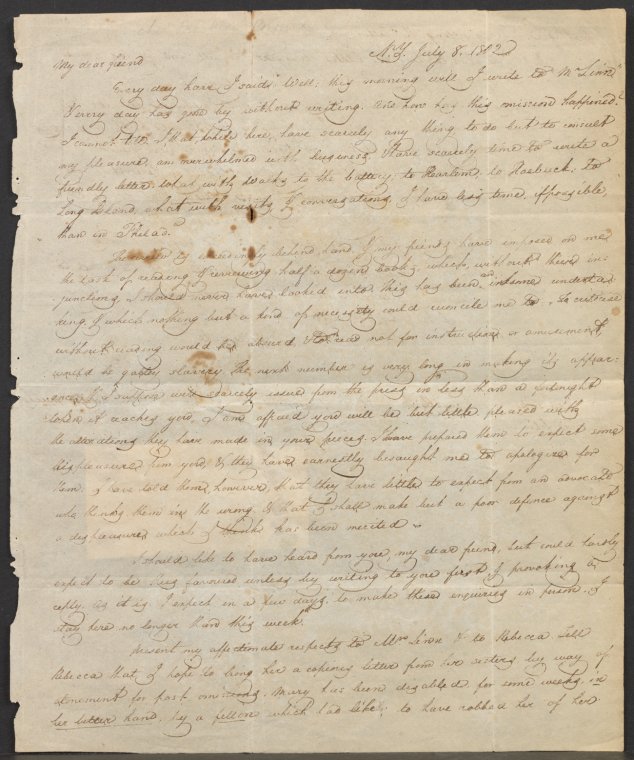 N.Y. July 8. 1802
My dear friend
Every day have I said; Well: this morning will I write to Mr Linn
& every day has gone by without writing. And how has this omission happened?
I cannot tell. I that while here, have scarcely any thing to do but to consult
my pleasure, am overwhelmed with business. I have scarcely time to write a
friendly letter. What with walks to the battery; to Haarlem, to Hoebuck, to
Long Island, what with visits, & conversations, I have less time, if possible,
than in Philad.
The review is exceedingly behind hand, & my friends have imposed on me
the task of reading & reviewing half a dozen books, which, without these in-
junctions, I should never have looked into. This has been an irksome undertak
ing, & which nothing but a kind of necessity could reconcile me to. To criticise
without reading would be absurd, & to read not for instruction or amusement,
would be galley slavery. The next number is very long in making its appear:
ance, & I suppose will scarcely issue from the press in less than a fortnight
When it reaches you, I am affraid you will be but little pleased with
the alterations they have made in your pieces. I have prepared them to expect some
displeasure from you, & they have earnestly besought me to apologize for
them. I have told them, however, that they have little to expect from an advocate
who thinks them in the wrong, & that I shall make but a poor defence against
a displeasure which I think has been merited.
I should like to have heard from you, my dear friend, but could hardly
expect to be thus favoured unless by writing to you first & provoking a
reply. As it is I expect in a few days, to make these enquiries in person. I
stay here no longer than this week.
Present my affectionate respects to Mrs Linn & to Rebecca. Tell
Rebecca that I hope to bring her a copious letter from her sisters by way of
atonement for past omissions. Mary has been disabled for some weeks, in
her better hand, by a fellon which had like to have robbed her of her